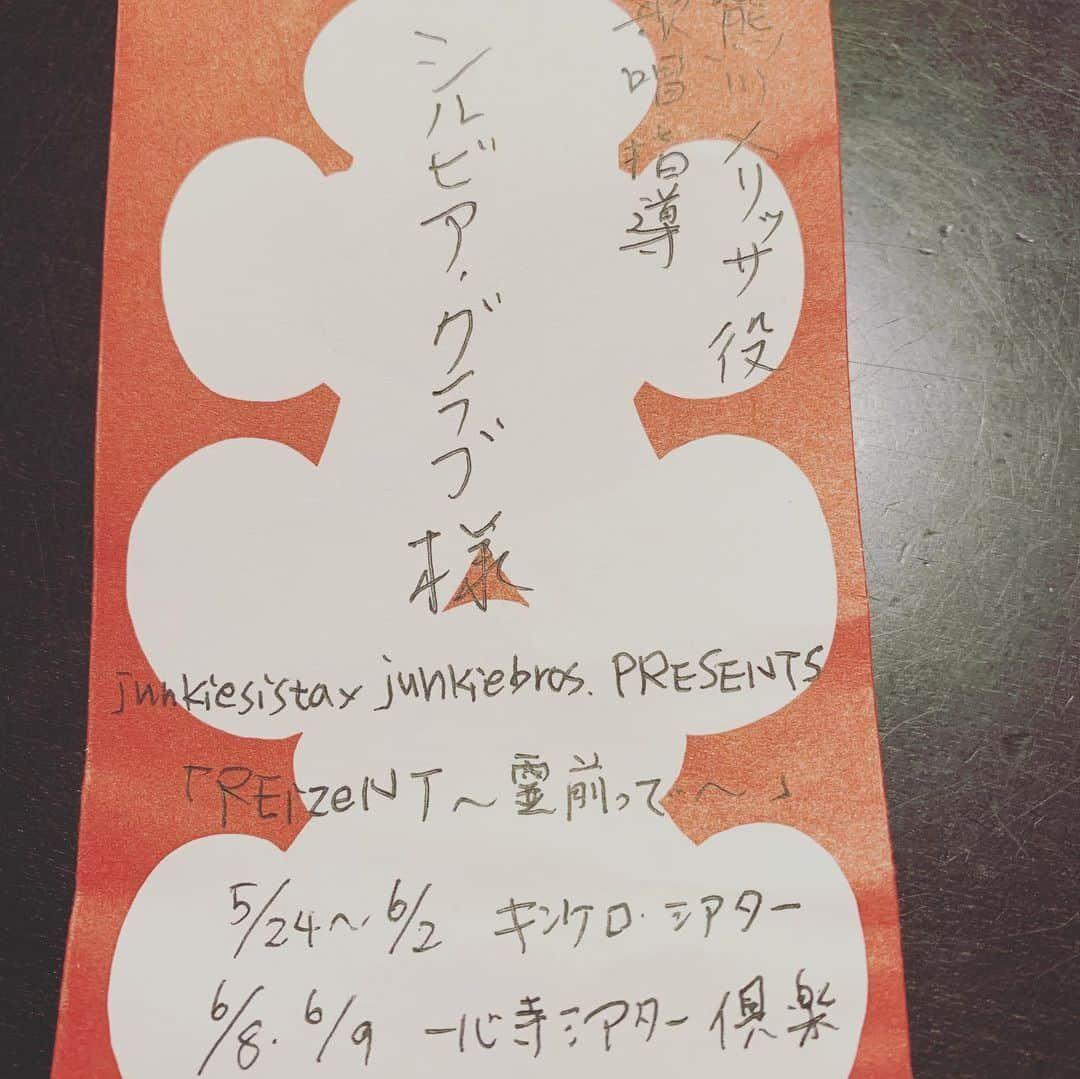 熊川メリッサ役
歌唱指導
シルビア・グラブ様
junkiesista x junkiebros. PRESENTS
「REizeNT〜霊前って〜」
5/24〜6/2 キンケロ・シアター
6/8・6/9 一心寺シアター倶楽